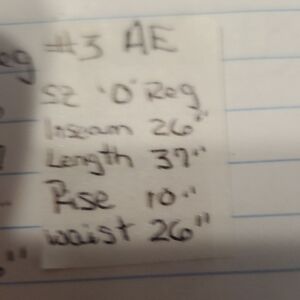 eg #3 AE
SZ 'O' Reg
Inseam 26"
Length 37"
Rise 10"
waist 26"